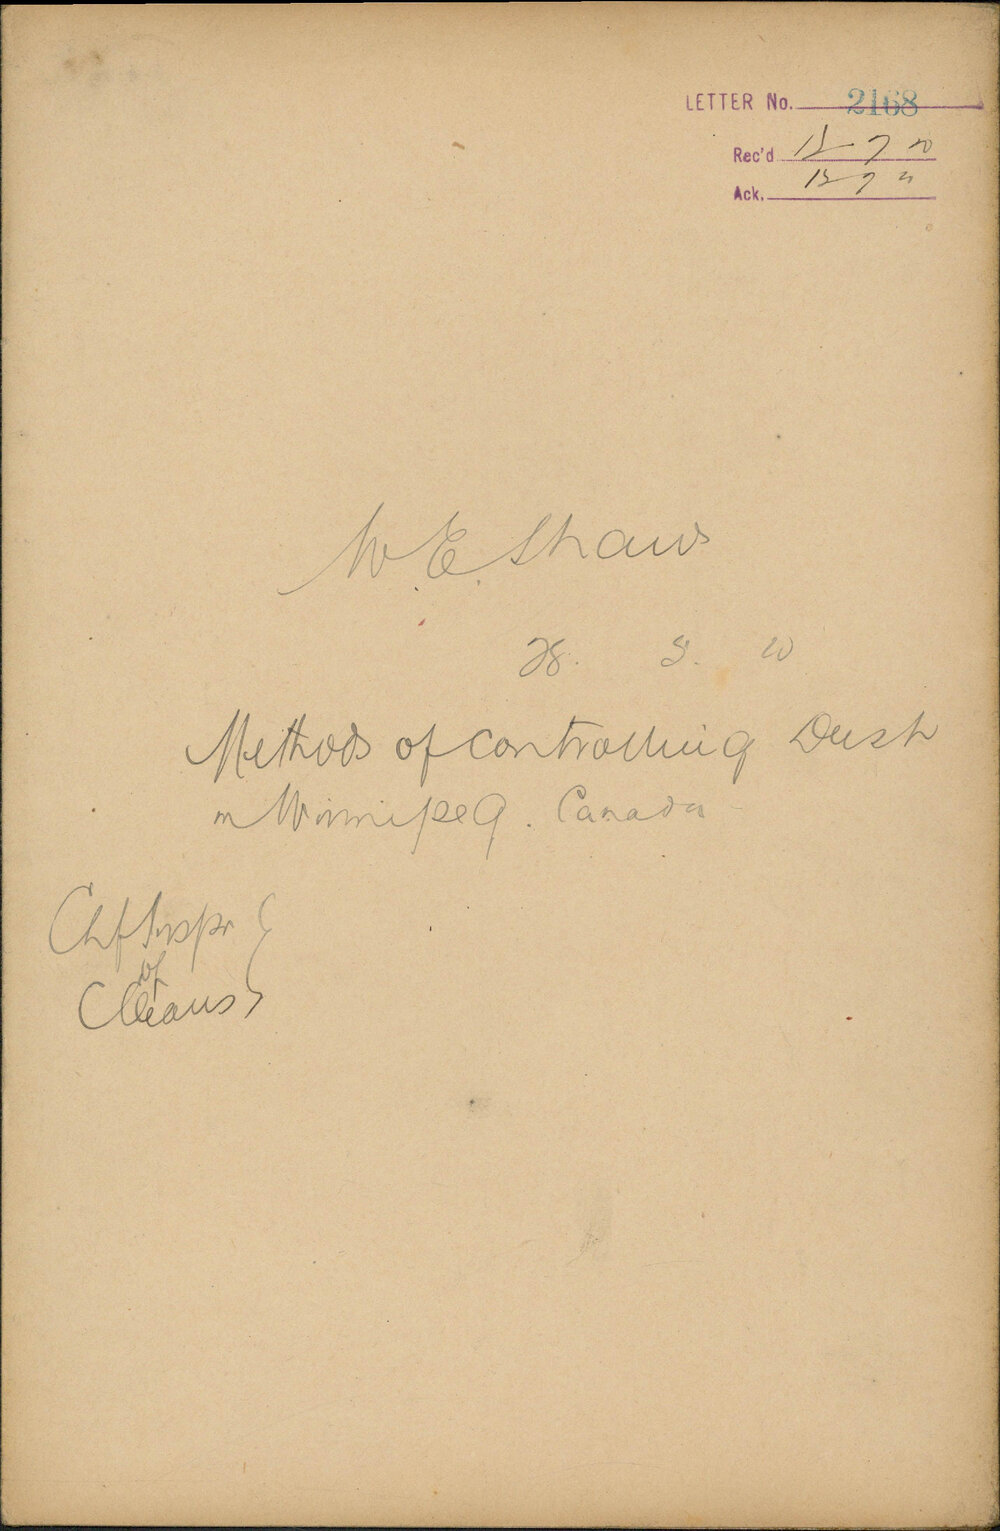 LETTER No. 2168
Rec'd 12 7 10
Ack. 12 7 "
W. E. Shaw
28. 5. 10
Methods of controlling Dust
in Winnipeg. Canada
Chf Inspr
of
Cleans